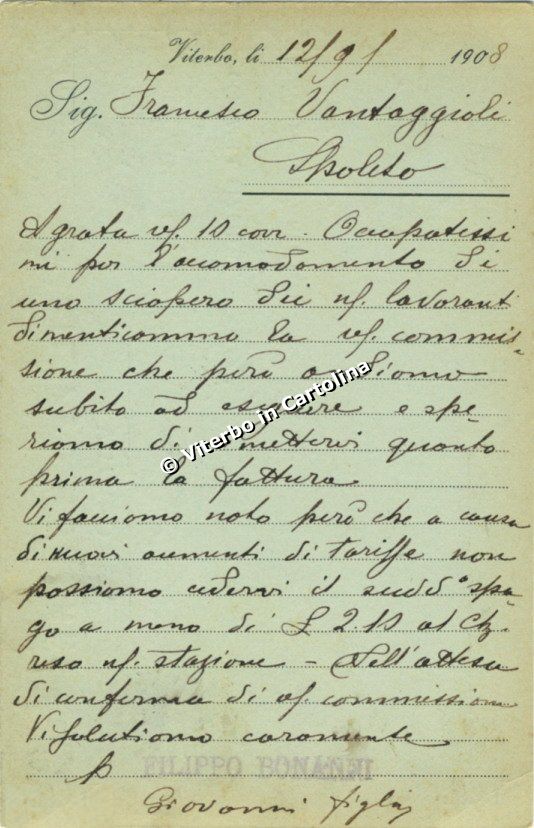 Viterbo, li 12/9/ 1908
Sig. Francesco Vantaggioli
Spoleto
A grata vs. 10 corr. Occupatissi
mi per l'accomodamento di
uno sciopero dei ns. lavoranti
dimenticammo la vs. commis-
sione che però andiamo
subito ad eseguire e spe-
riamo di rimettervi quanto
prima la fattura
Vi facciamo noto però che a causa
di nuovi aumenti di tariffe non
possiamo cedervi il sudd° spa
go a meno di £ 2.10 al Kg.
reso ns. stazione - Nell'attesa
di conferma di vs. commissione
Vi salutiamo caramente
p FILIPPO BONANNI
Giovanni figlio
© Viterbo in Cartolina